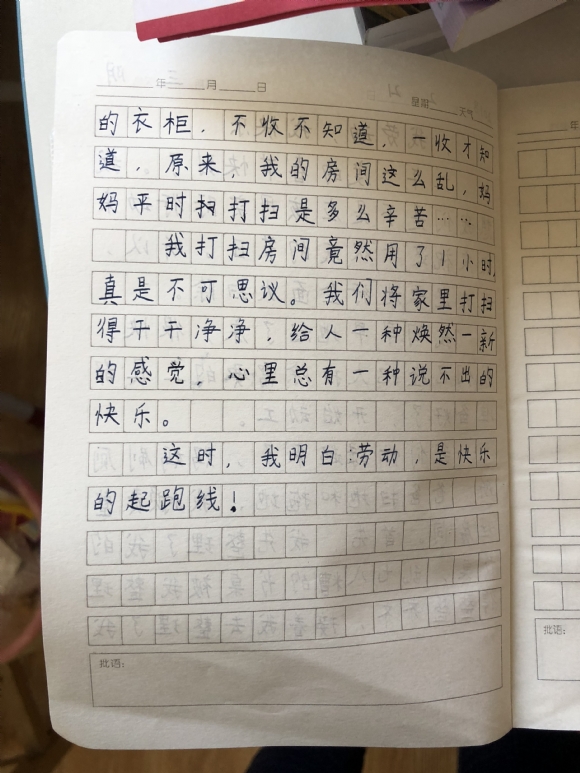 年 月 日 星期 天气
的衣柜，不收不知道，一收才知
道，原来，我的房间这么乱，妈
妈平时扫打扫是多么辛苦……
我打扫房间竟然用了1小时，
真是不可思议。我们将家里打扫
得干干净净，给人一种焕然一新
的感觉，心里总有一种说不出的
快乐。
这时，我明白：劳动，是快乐
的起跑线！
批语：
年
批语：